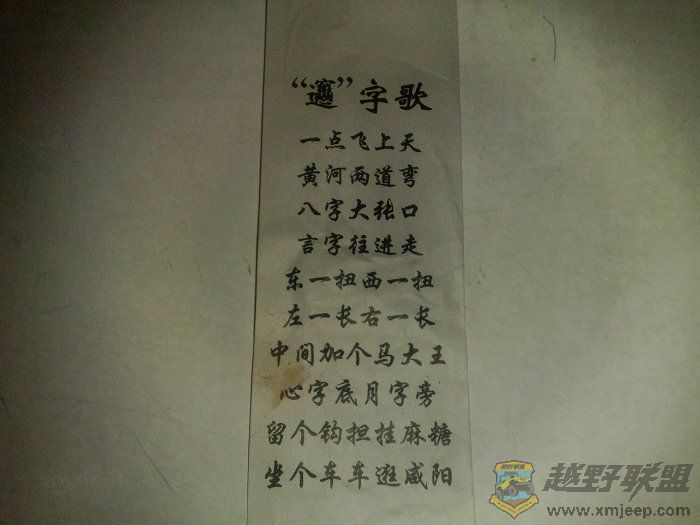 “𰻝”字歌
一点飞上天
黄河两道弯
八字大张口
言字往进走
东一扭西一扭
左一长右一长
中间加个马大王
心字底月字旁
留个钩担挂麻糖
坐个车车逛咸阳
越野联盟
www.xmjeep.com